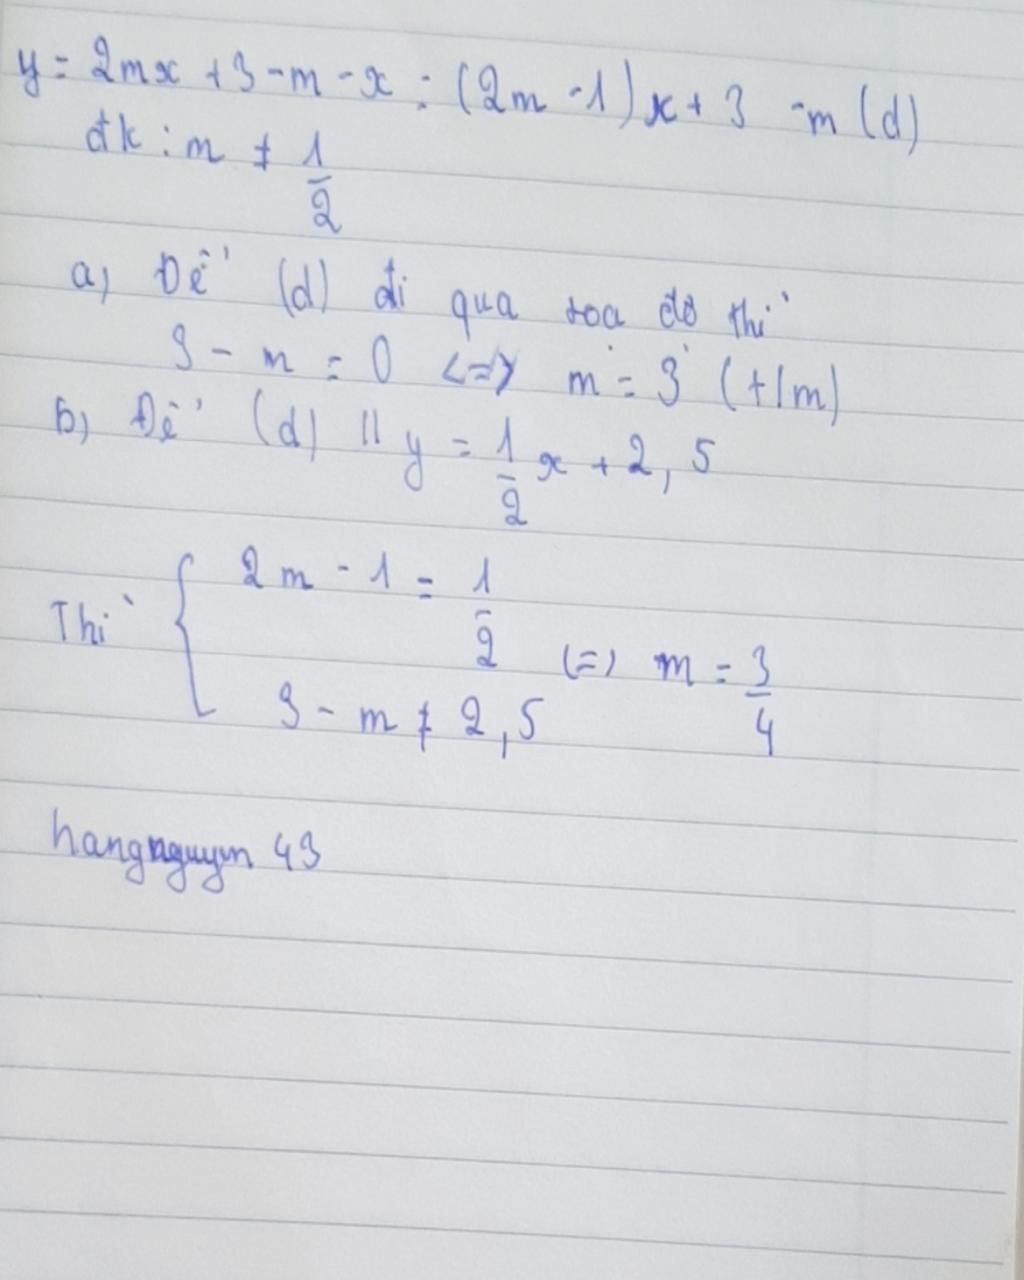 y = 2mx + 3 - m - x = (2m - 1)x + 3 - m (d)
đk : m ≠ 1/2
a) Để (d) đi qua toạ độ thì
3 - m = 0 <=> m = 3 (t/m)
b) Để (d) // y = 1/2 x + 2,5
Thì { 2m - 1 = 1/2
(=) m = 3/4
3 - m ≠ 2,5
hangnguyen 43